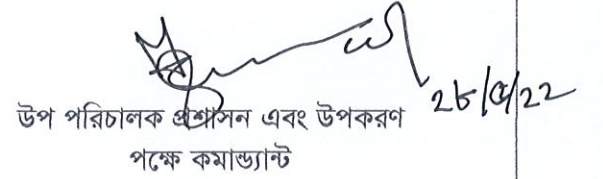 ২৮/৫/২২
উপ পরিচালক প্রশাসন এবং উপকরণ
পক্ষে কমান্ড্যান্ট